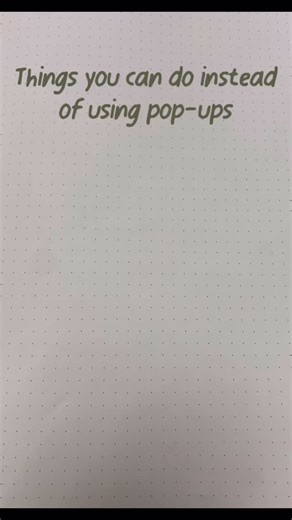 Things you can do instead
of using pop-ups